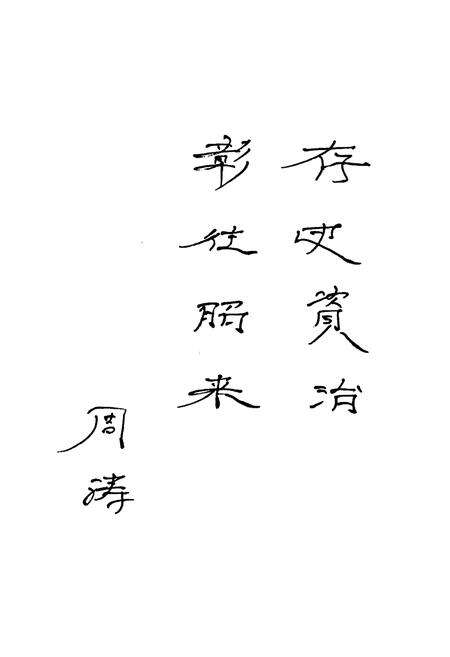 存史資治
彰往昭来
周涛